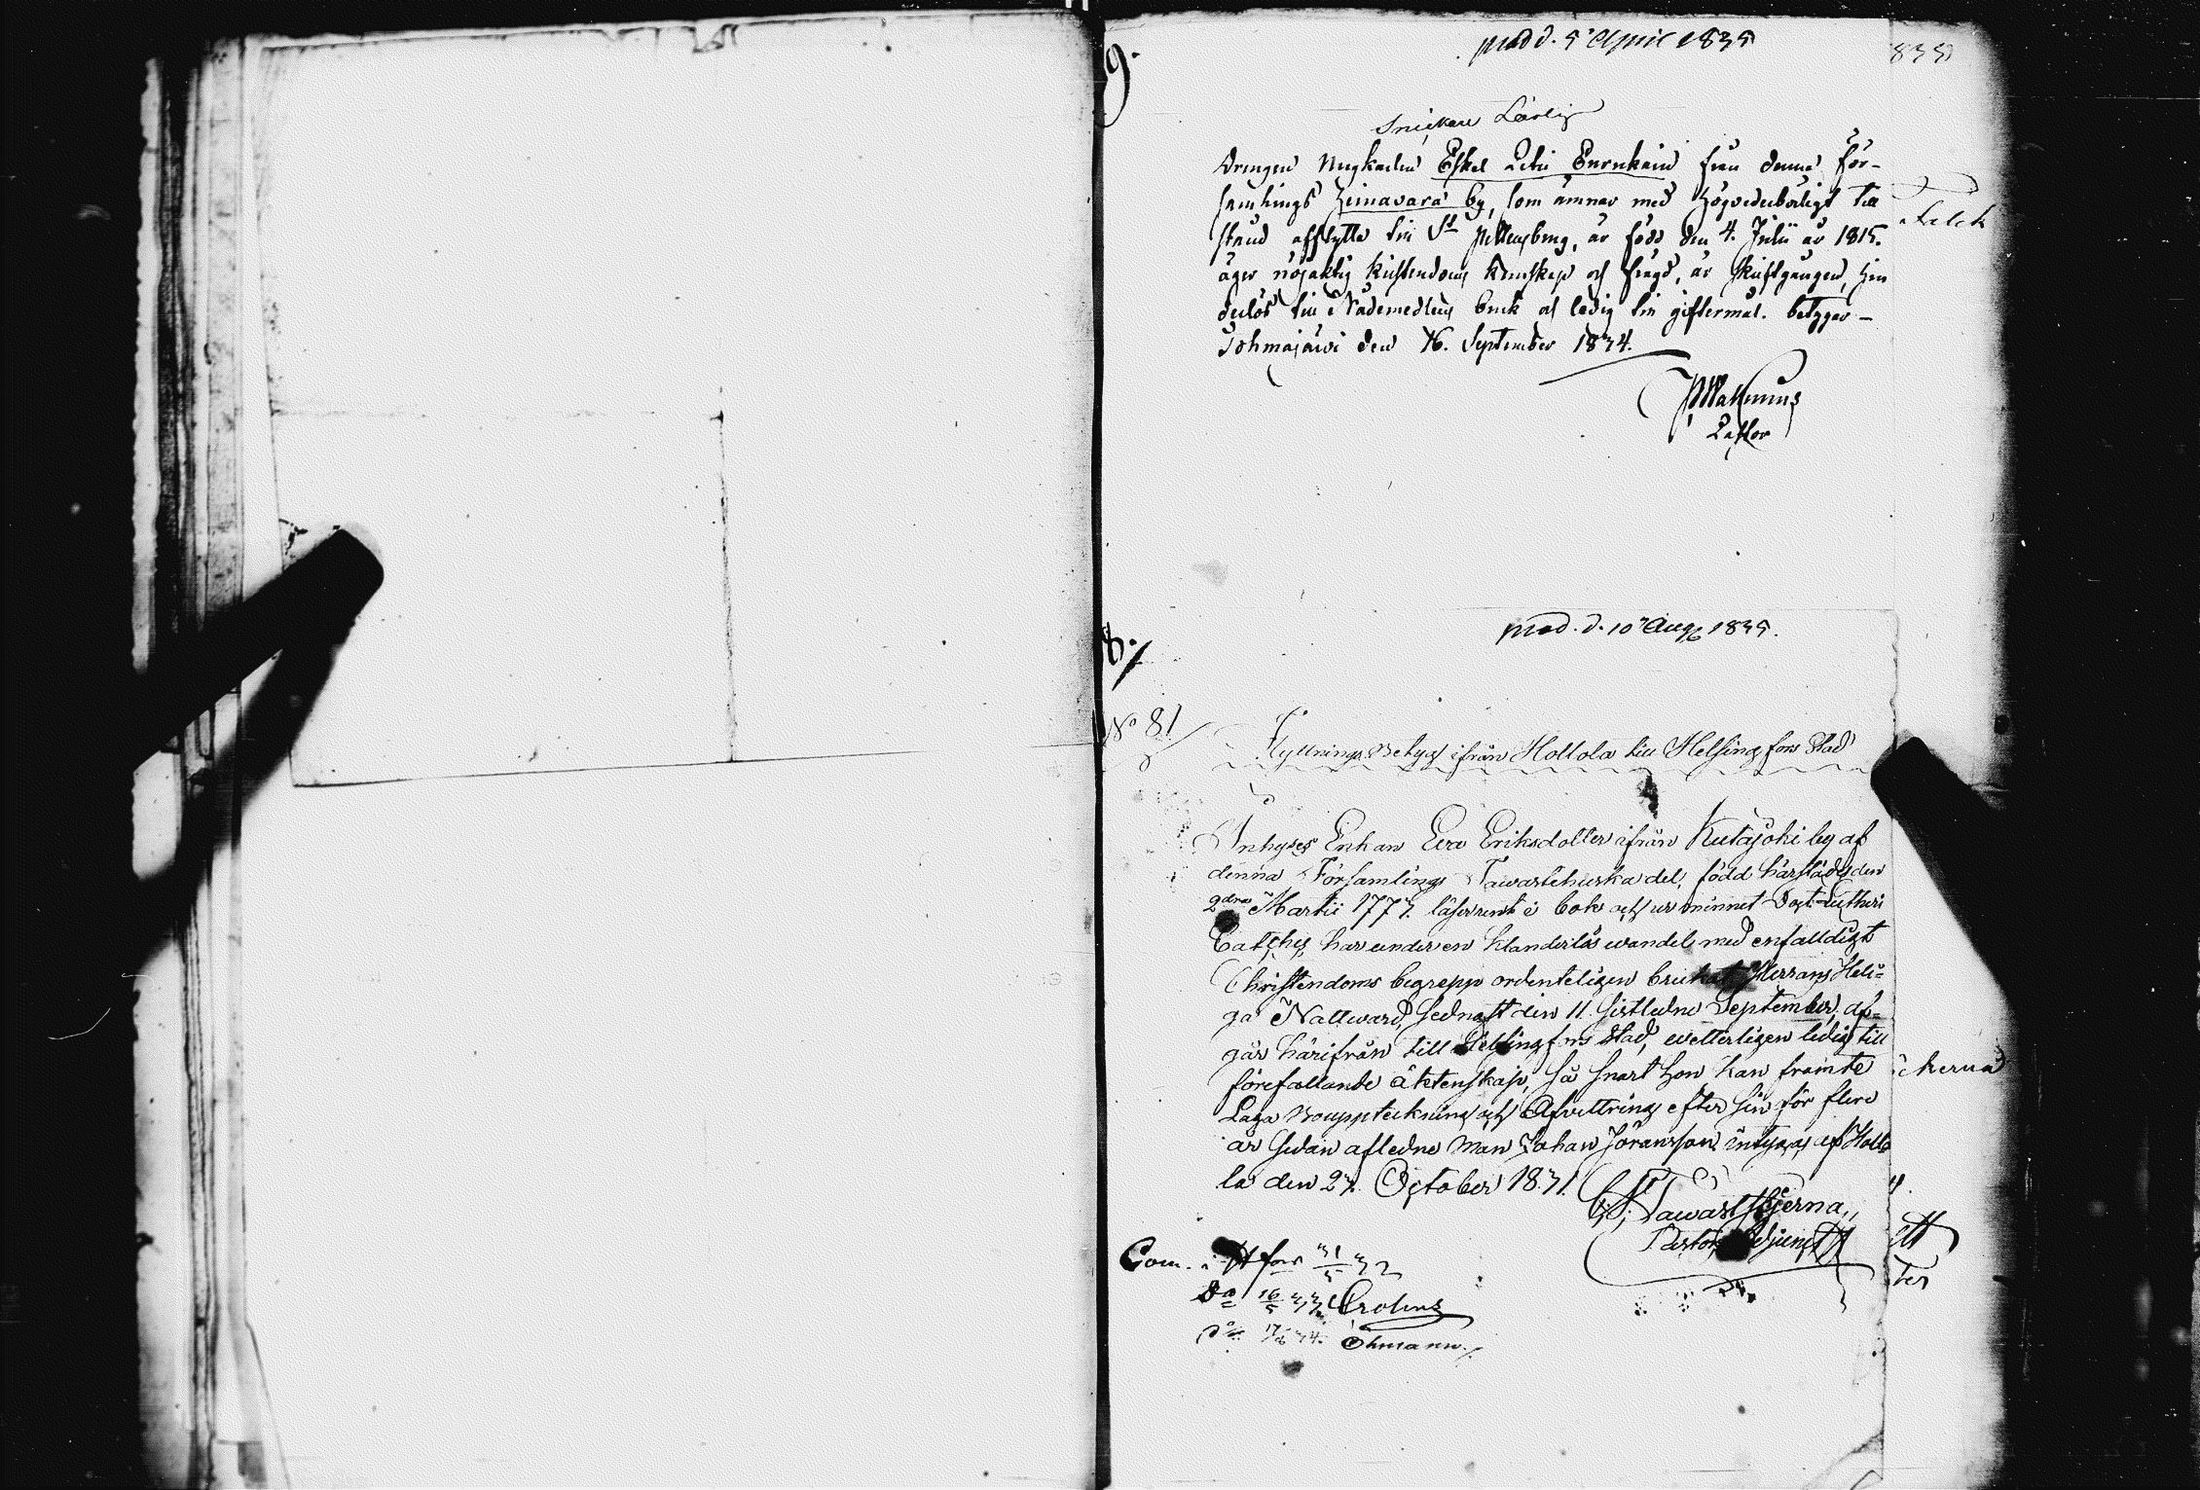 prod d. 5 April 1835
9.
835
Snickare Lärling
Drengen Ungkarlen Eskel Petri Eurnkain från denna för-
samlings Heinavara by, som ämnar med högvederbörligt till
stånd afflytta till St Pettersburg, är född den 4. Julii år 1815.
äger nöjaktig kristendoms kunskap och frägd, är skriftgången, hin
derlös till Nådemedlens bruk och ledig till giftermål. betygar –
Tohmajärvi den 16. September 1834.
Pastor
prod. d. 10 Aug 1835.
8./
No 81
Flyttnings Betyg ifrån Hollola till Helsingfors Stad
Inhyses Enkan Eva Eriksdotter ifrån Kutajoki by af
denna Församlings Tawastehuska del, född härstädes den
2dra Martii 1777. läser rent i bok och ur minnet Doct. Lutheri
Catches, har under en klanderlös wandel med enfalldigt
Christendoms begrepp ordenteligen brukat Herrans Heli=
ga Nattward, sednast den 11 sistledne September, af=
går härifrån till Helsingfors Stad, wetterligen ledig till
förefallande äktenskap, så snart hon kan framte
Laga Bouppteckning och Afvittring efter sin för flere
år sedan afledne man Johan Jöransson intygas af Hollo
la den 27. October 1831.
Tawaststjerna,,
Pastors Adjunct
Com. i H:fors 31/5 32
Do 16/5 33 Crolins
do 34. Öhmann./.